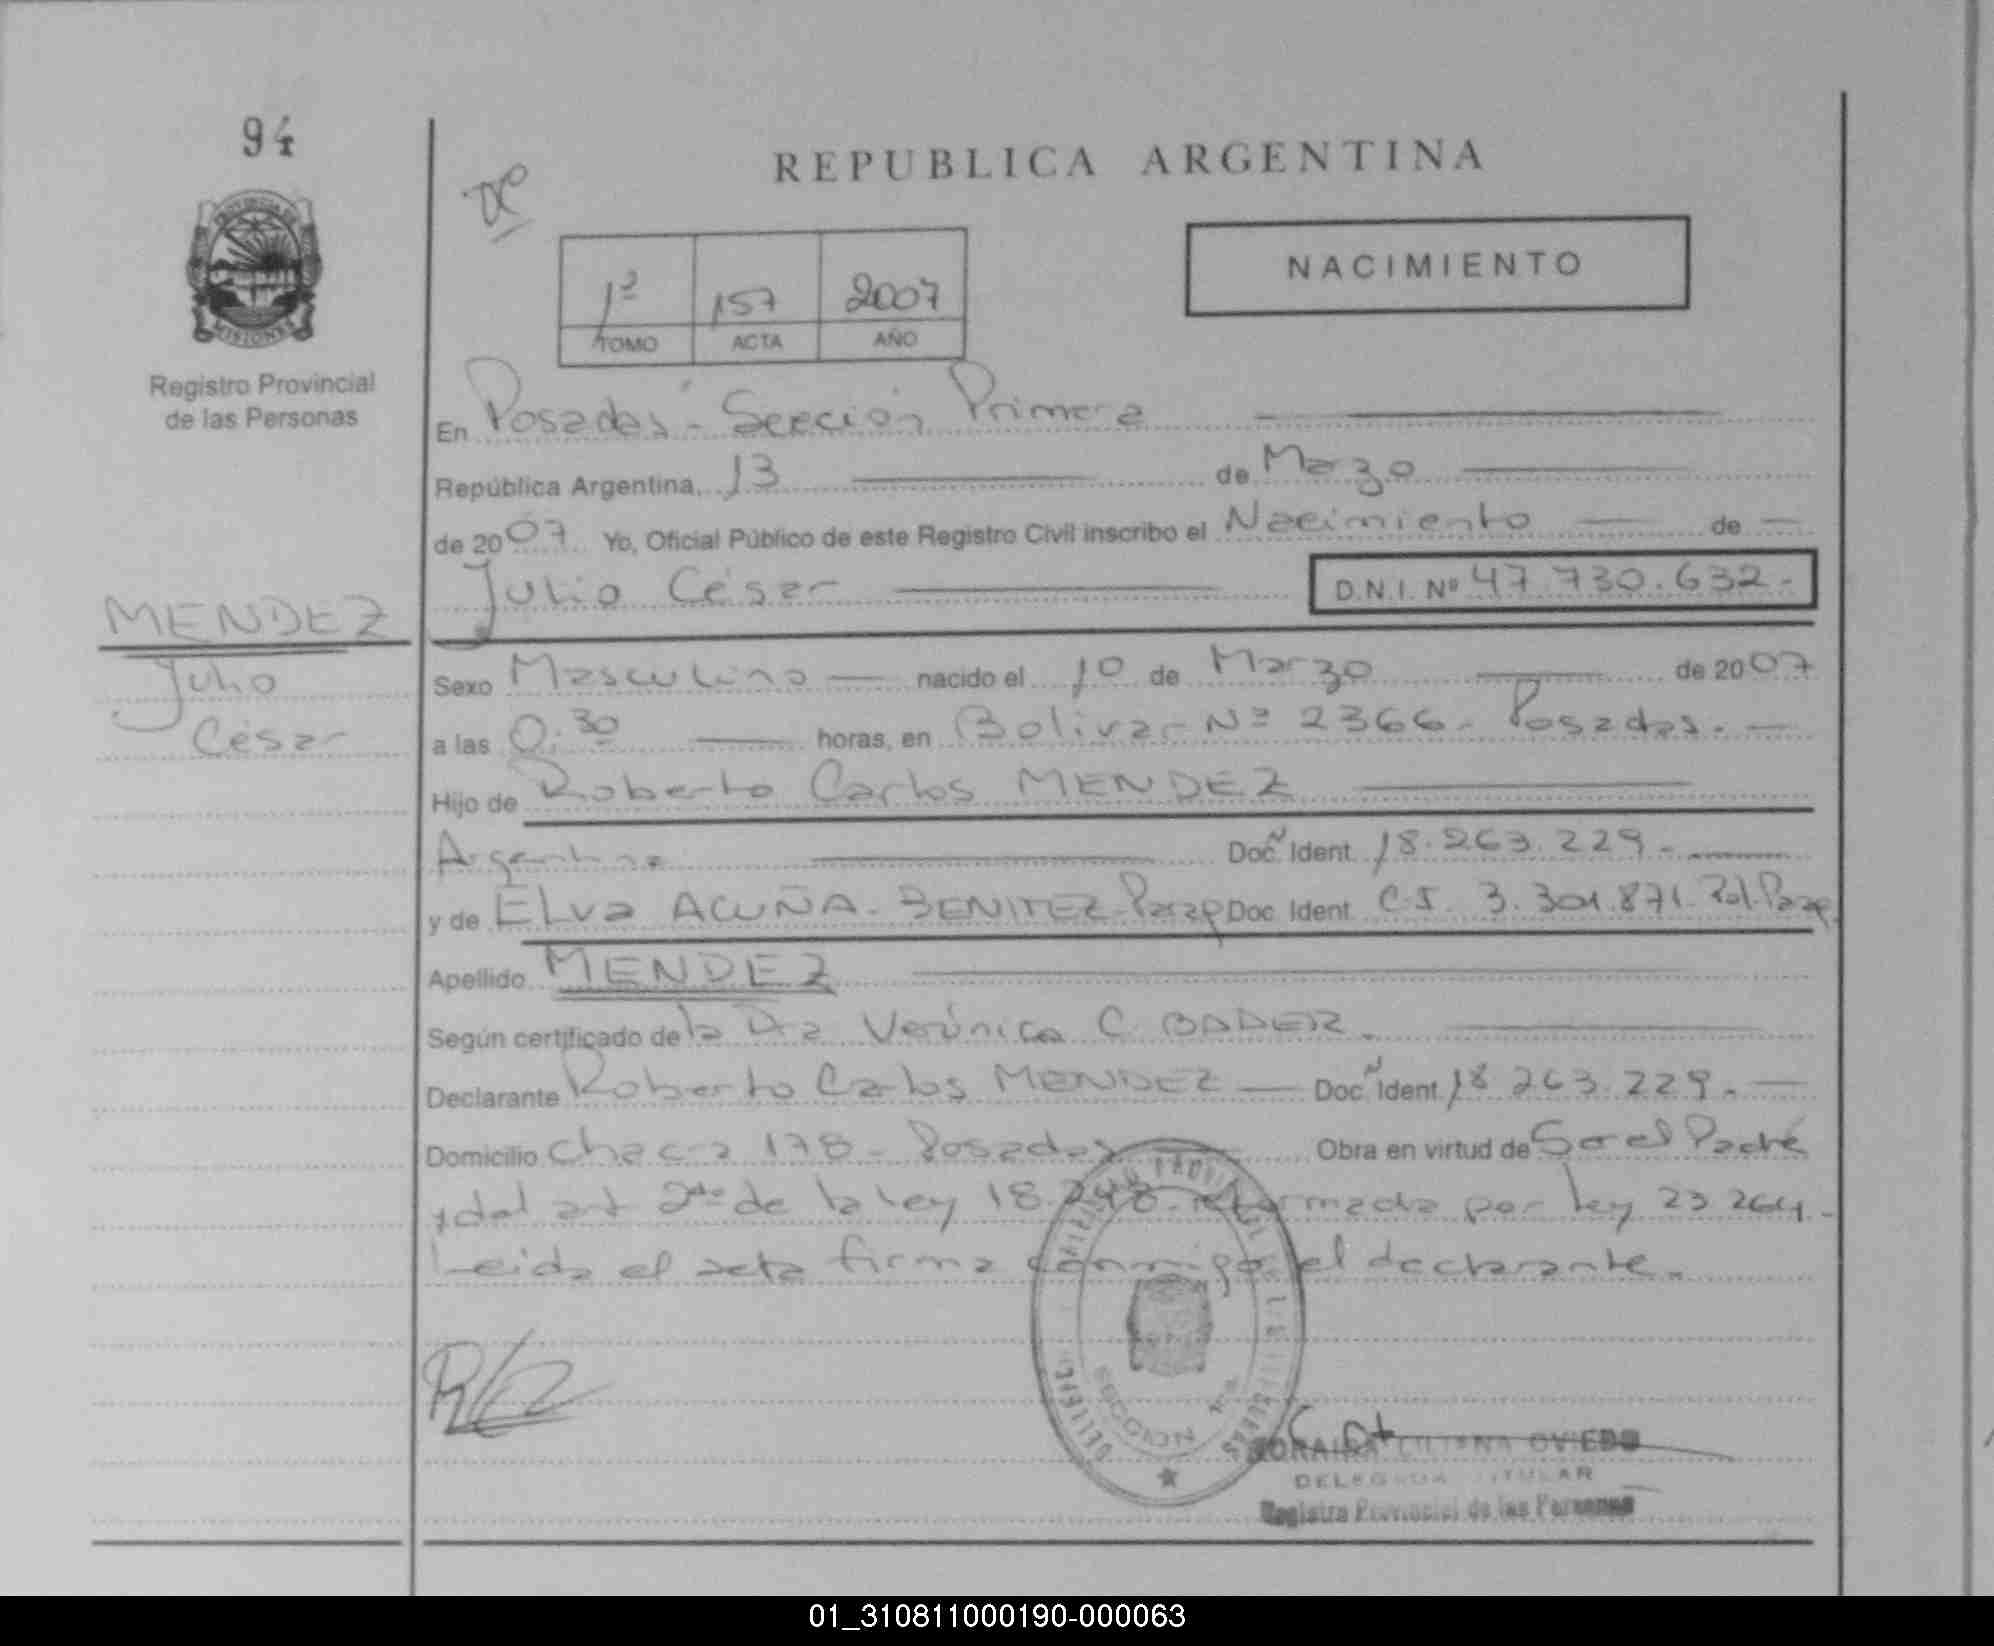 94
REPUBLICA ARGENTINA
PROVINCIA DE
MISIONES
Registro Provincial
de las Personas
1º 157 2007
TOMO ACTA AÑO
NACIMIENTO
En Posadas - Sección Primera
República Argentina, 13 de Marzo
de 2007 Yo, Oficial Público de este Registro Civil inscribo el Nacimiento de
Julio César D.N.I. Nº 47.730.632.-
MENDEZ
Julio
César
Sexo Masculino nacido el 10 de Marzo de 2007
a las 0.30 horas, en Bolivar Nº 2366 - Posadas.
Hijo de Roberto Carlos MENDEZ
Argentino Doc. Ident. 18.263.229.-
y de Elva ACUÑA - BENITEZ - Parag Doc. Ident. C.I. 3.301.871. Pol. Parag.
Apellido MENDEZ
Según certificado de la Dra Verónica C. BADER.
Declarante Roberto Carlos MENDEZ Doc. Ident. 18 263.229.-
Domicilio Chacra 178 - Posadas Obra en virtud de Ser el Padre
y del art 2do de la ley 18.248. reformada por ley 23 264.-
Leida el acta firma conmigo el declarante.
LILIANA OVIEDO
DELEGADA TITULAR
Registro Provincial de las Personas
01_310811000190-000063